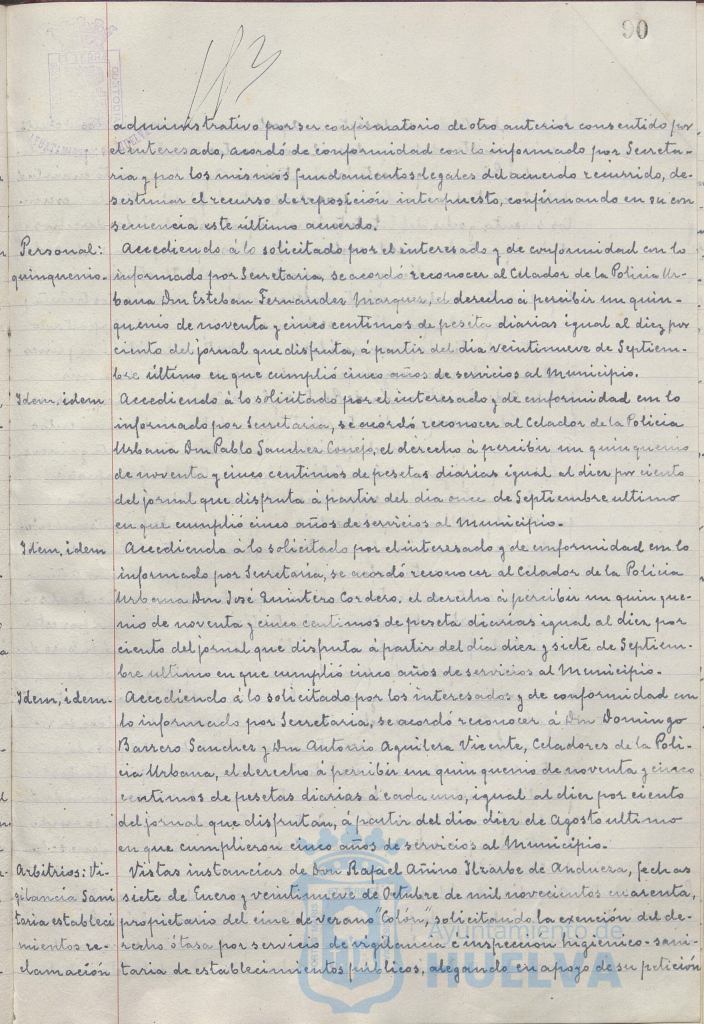 90
administrativo por ser confirmatorio de otro anterior consentido por
el interesado, acordó de conformidad con lo informado por Secreta-
ria y por los mismos fundamentos legales del acuerdo recurrido, de-
sestimar el recurso de reposición interpuesto, confirmando en su con
secuencia este último acuerdo.
Personal:
quinquenio-
Accediendo á lo solicitado por el interesado y de conformidad con lo
informado por Secretaria, se acordó reconocer al Celador de la Policia Ur-
bana Don Esteban Fernandez Marquez, el derecho á percibir un quin-
quenio de noventa y cinco centimos de peseta diarias igual al diez por
ciento del jornal que disfruta, á partir del dia veintinueve de Septiem-
bre último en que cumplió cinco años de servicios al Municipio.
Idem, idem
Accediendo á lo solicitado por el interesado y de conformidad con lo
informado por Secretaria, se acordó reconocer al Celador de la Policia
Urbana Don Pablo Sanchez Conejo, el derecho á percibir un quinquenio
de noventa y cinco centimos de pesetas diarias igual al diez por ciento
del jornal que disfruta á partir del dia once de Septiembre ultimo
en que cumplió cinco años de servicios al Municipio.-
Idem, idem
Accediendo á lo solicitado por el interesado y de conformidad con lo
informado por Secretaria, se acordó reconocer al Celador de la Policia
Urbana Don José Quintero Cordero, el derecho á percibir un quinque-
nio de noventa y cinco centimos de peseta diarias igual al diez por
ciento del jornal que disfruta á partir del dia diez y siete de Septiem-
bre ultimo en que cumplió cinco años de servicios al Municipio.-
Idem, idem-
Accediendo á lo solicitado por los interesados y de conformidad con
lo informado por Secretaria, se acordó reconocer á Don Domingo
Barrero Sanchez y Don Antonio Aguilera Vicente, Celadores de la Poli-
cia Urbana, el derecho á percibir un quinquenio de noventa y cinco
centimos de pesetas diarias á cada uno, igual al diez por ciento
del jornal que disfrutan, á partir del dia diez de Agosto ultimo
en que cumplieron cinco años de servicios al Municipio.-
Arbitrios: Vi-
gilancia Sani
taria estableci
mientos re-
clamación
Vistas instancias de Don Rafael Añino Ilzarbe de Andueza, fechas
siete de Enero y veintinueve de Octubre de mil novecientos cuarenta,
propietario del cine de verano "Colón", solicitando la exención del de-
recho ó tasa por servicio de vigilancia é inspeccion higienico-sani-
taria de establecimientos públicos, alegando en apoyo de su petición
Ayuntamiento de
HUELVA